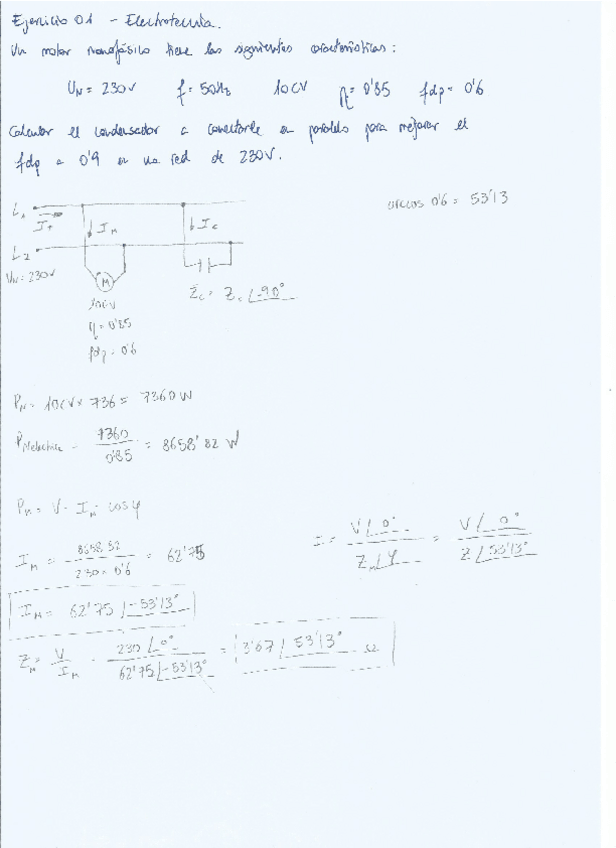 Ejercicio 01 - Electrotecnia.
Un motor monofásico tiene las siguientes características:
UN = 230V f = 50Hz 10CV η = 0'85 fdp = 0'6
Calcular el condensador a conectarle en paralelo para mejorar el
fdp a 0'9 en una red de 230V.
arccos 0'6 = 53'13
L1
IT
IM
IC
L2
UN = 230V
M
10CV
η = 0'85
fdp = 0'6
Zc = Zc ∠-90°
PN = 10CV x 736 = 7360 W
PMelectrica = 7360 / 0'85 = 8658'82 W
PM = V · IM · cos φ
IM = 8658'82 / 230 x 0'6 = 62'75
I = V∠0° / ZM∠φ = V∠0° / Z∠53'13°
IM = 62'75 ∠-53'13°
ZM = V / IM = 230∠0° / 62'75∠-53'13° = 3'67 ∠53'13° Ω